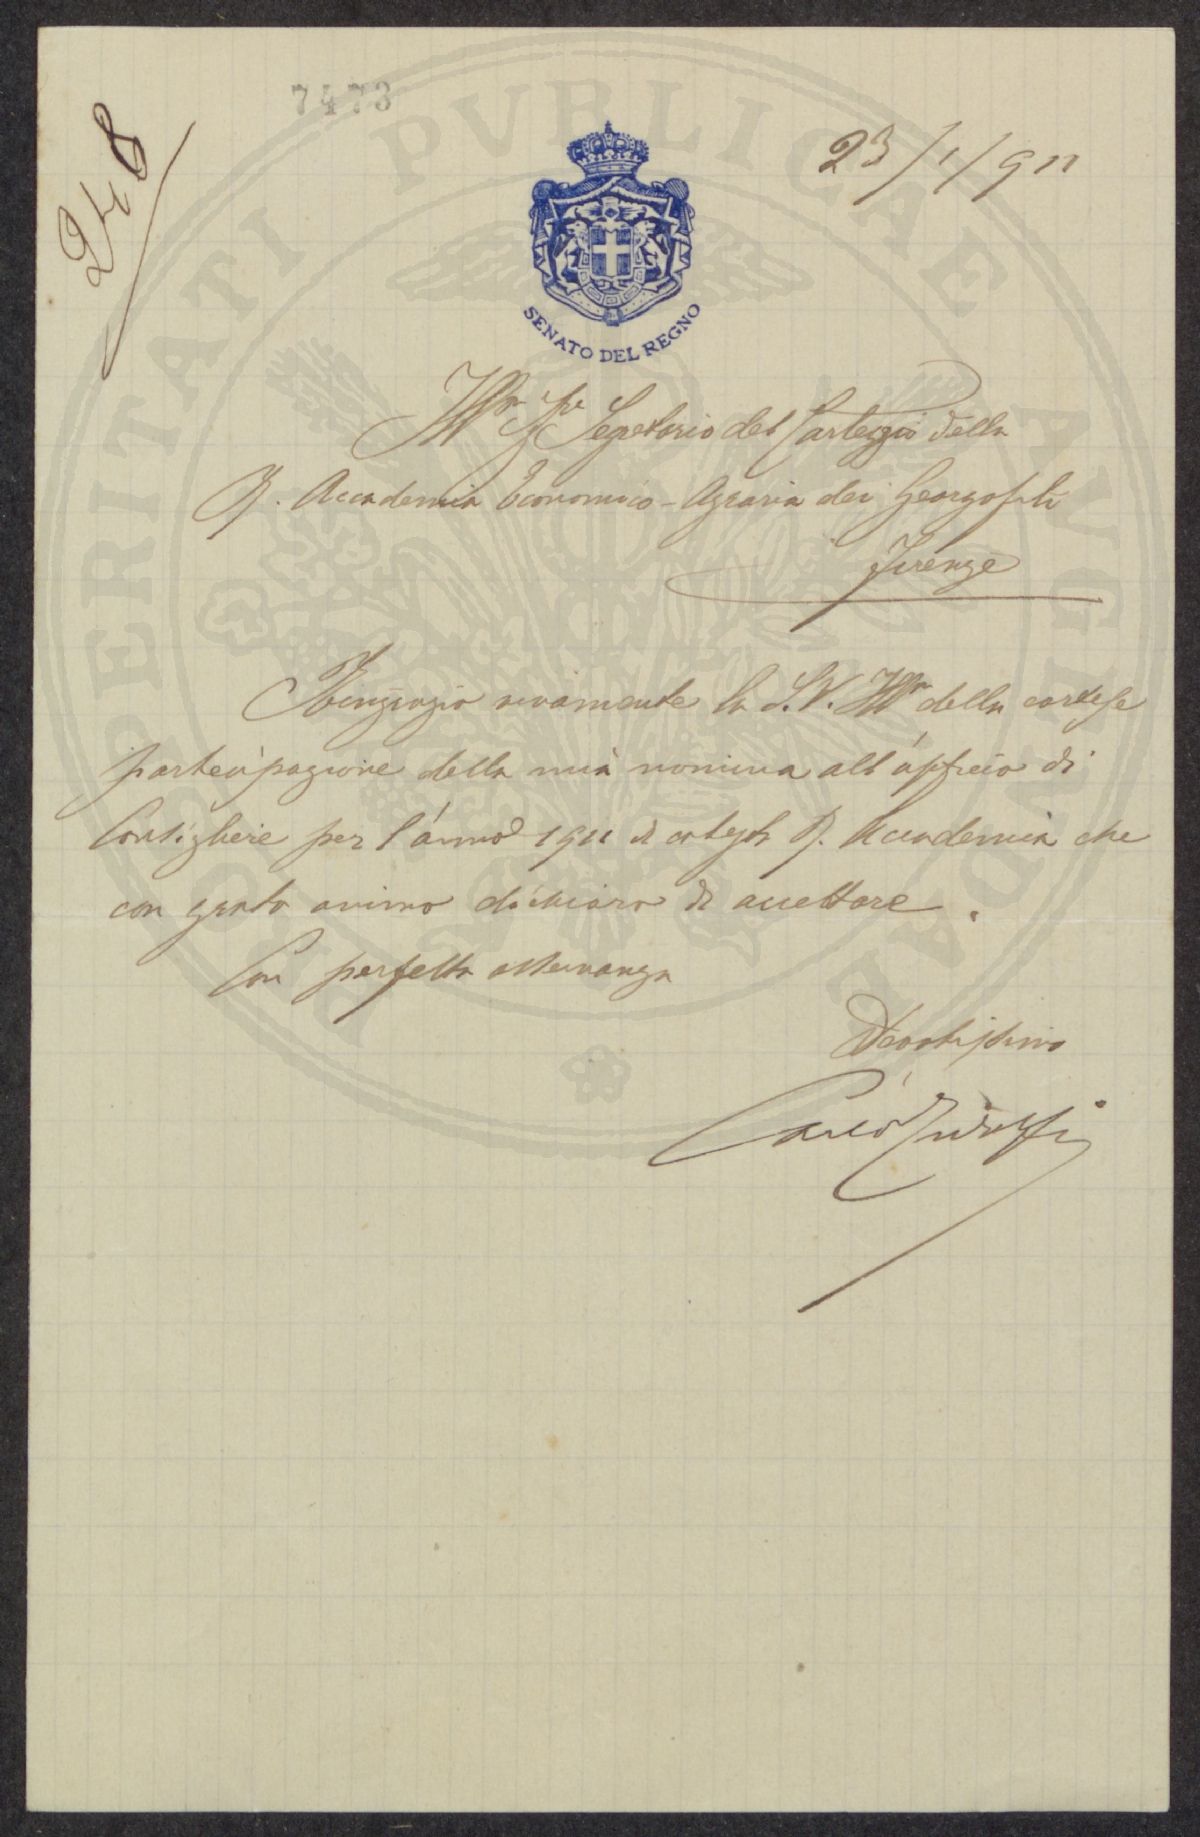 7473
248
23/1/911
SENATO DEL REGNO
Illmo Sre Segretario del Carteggio della
R. Accademia Economico-Agraria dei Georgofili
Firenze
Ringrazio vivamente la S.V. Illma della cortese
partecipazione della mia nomina all'ufficio di
Consigliere per l'anno 1911 di codesta R. Accademia che
con grato animo dichiaro di accettare.
Con perfetta osservanza
Devotissimo
Carlo Ridolfi
PROSPERITATI PVBLICAE AVGENDAE